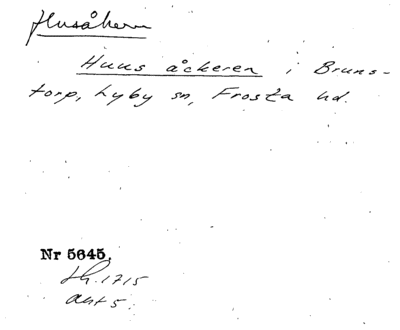 Husåkern
Huus åckeren i Bruns-
torp, Lyby sn, Frosta hd.
Nr 5645.
Lh. 1715
akt 5.